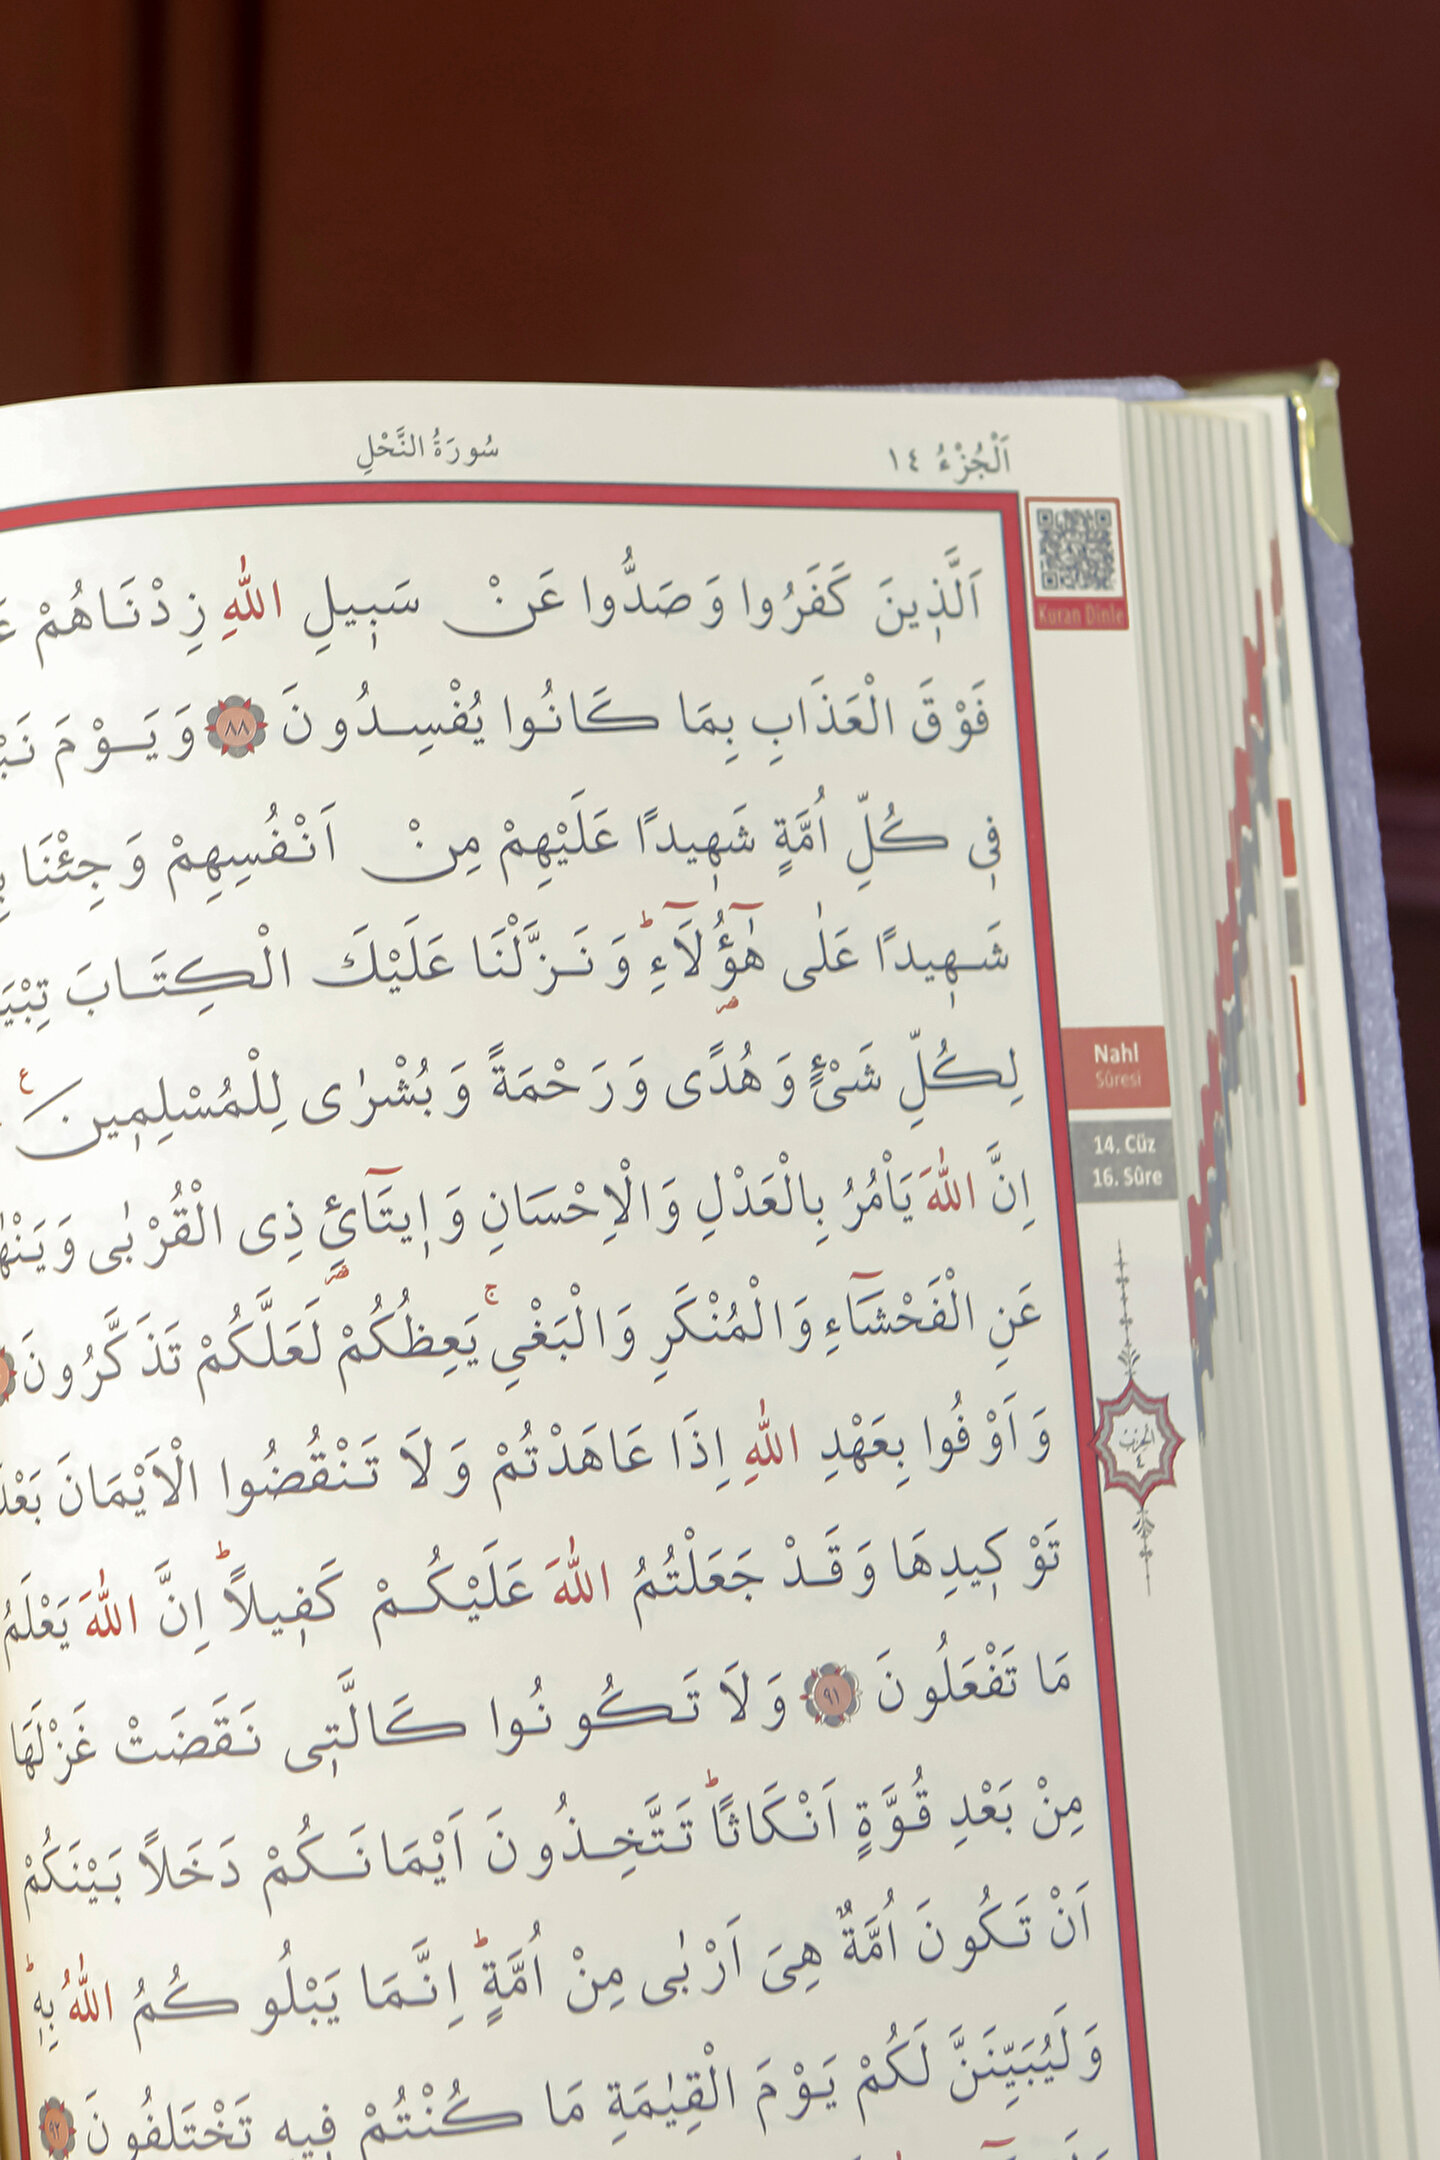 اَلْجُزْءُ ١٤
سُورَةُ النَّحْلِ
Kuran Dinle
اَلَّذ۪ينَ كَفَرُوا وَصَدُّوا عَنْ سَب۪يلِ اللّٰهِ زِدْنَاهُمْ
فَوْقَ الْعَذَابِ بِمَا كَانُوا يُفْسِدُونَ ٨٨ وَيَوْمَ
ف۪ي كُلِّ اُمَّةٍ شَه۪يدًا عَلَيْهِمْ مِنْ اَنْفُسِهِمْ وَجِئْنَا
شَه۪يدًا عَلٰى هٰٓؤُ۬لَٓاءِۜ وَنَزَّلْنَا عَلَيْكَ الْكِتَابَ
لِكُلِّ شَيْءٍ وَهُدًى وَرَحْمَةً وَبُشْرٰى لِلْمُسْلِم۪ينَ۟
اِنَّ اللّٰهَ يَأْمُرُ بِالْعَدْلِ وَالْاِحْسَانِ وَا۪يتَٓائِ ذِي الْقُرْبٰى
عَنِ الْفَحْشَٓاءِ وَالْمُنْكَرِ وَالْبَغْيِۚ يَعِظُكُمْ لَعَلَّكُمْ تَذَكَّرُونَ
وَاَوْفُوا بِعَهْدِ اللّٰهِ اِذَا عَاهَدْتُمْ وَلَا تَنْقُضُوا الْاَيْمَانَ بَعْدَ
تَوْك۪يدِهَا وَقَدْ جَعَلْتُمُ اللّٰهَ عَلَيْكُمْ كَف۪يلًاۜ اِنَّ اللّٰهَ يَعْلَمُ
مَا تَفْعَلُونَ ٩١ وَلَا تَكُونُوا كَالَّت۪ي نَقَضَتْ غَزْلَهَا
مِنْ بَعْدِ قُوَّةٍ اَنْكَاثًاۜ تَتَّخِذُونَ اَيْمَانَكُمْ دَخَلًا بَيْنَكُمْ
اَنْ تَكُونَ اُمَّةٌ هِيَ اَرْبٰى مِنْ اُمَّةٍۜ اِنَّمَا يَبْلُوكُمُ اللّٰهُ بِه۪ۜ
وَلَيُبَيِّنَنَّ لَكُمْ يَوْمَ الْقِيٰمَةِ مَا كُنْتُمْ ف۪يهِ تَخْتَلِفُونَ ٩٢
Nahl
Sûresi
14. Cüz
16. Sûre
الحزب
٤